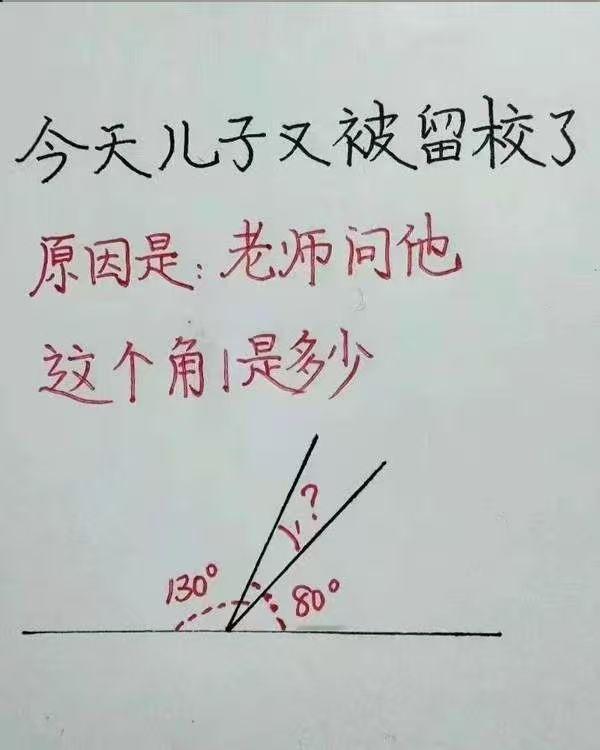 今天儿子又被留校了
原因是:老师问他
这个角1是多少
?
130°
80°